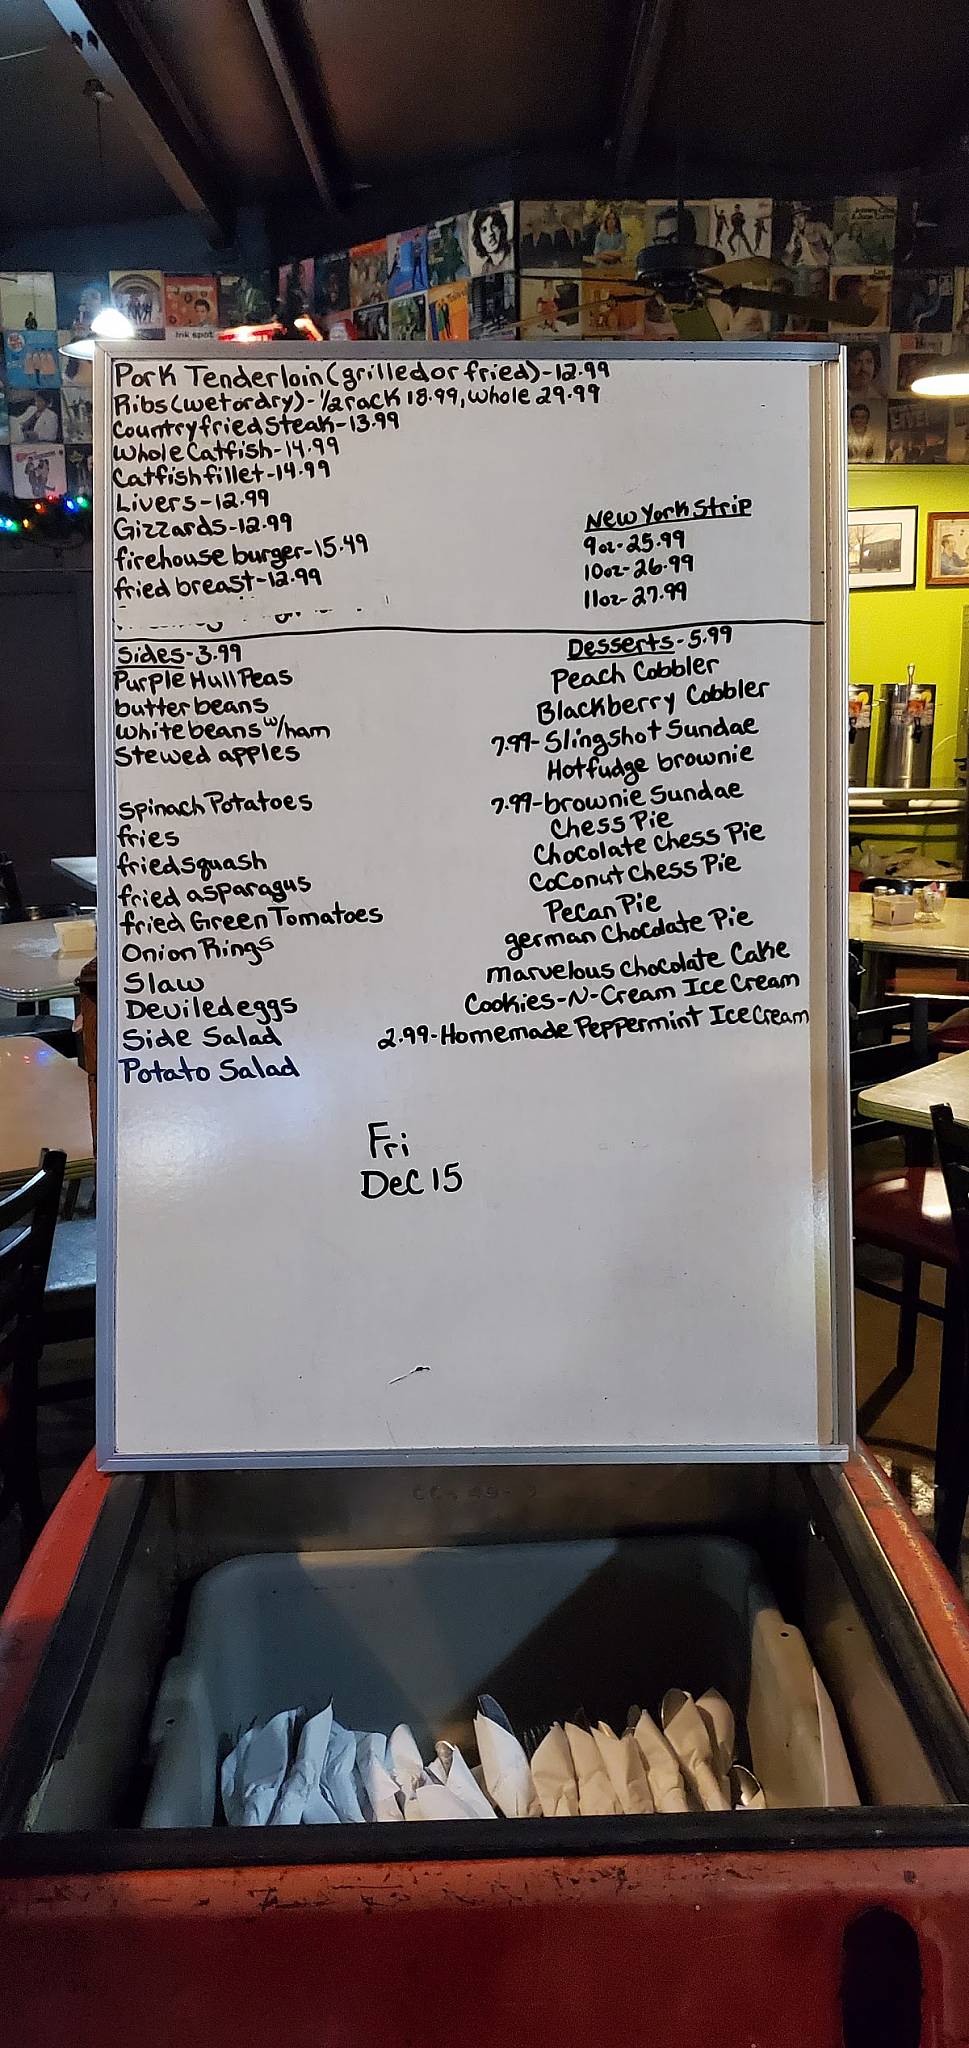 Pork Tenderloin (grilled or fried) - 12.99
Ribs (wet or dry) - 1/2 rack 18.99, whole 29.99
Country fried Steak - 13.99
Whole Catfish - 14.99
Catfish fillet - 14.99
Livers - 12.99
Gizzards - 12.99
firehouse burger - 15.49
fried breast - 12.99
New York Strip
9oz - 25.99
10oz - 26.99
11oz - 27.99
Sides - 3.99
Purple Hull Peas
butter beans
white beans w/ham
Stewed apples
Spinach Potatoes
fries
fried squash
fried asparagus
fried Green Tomatoes
Onion Rings
Slaw
Deviled eggs
Side Salad
Potato Salad
Desserts - 5.99
Peach Cobbler
Blackberry Cobbler
7.99 - Slingshot Sundae
Hot fudge brownie
7.99 - brownie Sundae
Chess Pie
Chocolate Chess Pie
Coconut Chess Pie
Pecan Pie
german Chocolate Pie
marvelous Chocolate Cake
Cookies-N-Cream Ice Cream
2.99 - Homemade Peppermint Ice Cream
Fri
Dec 15
Ink spot